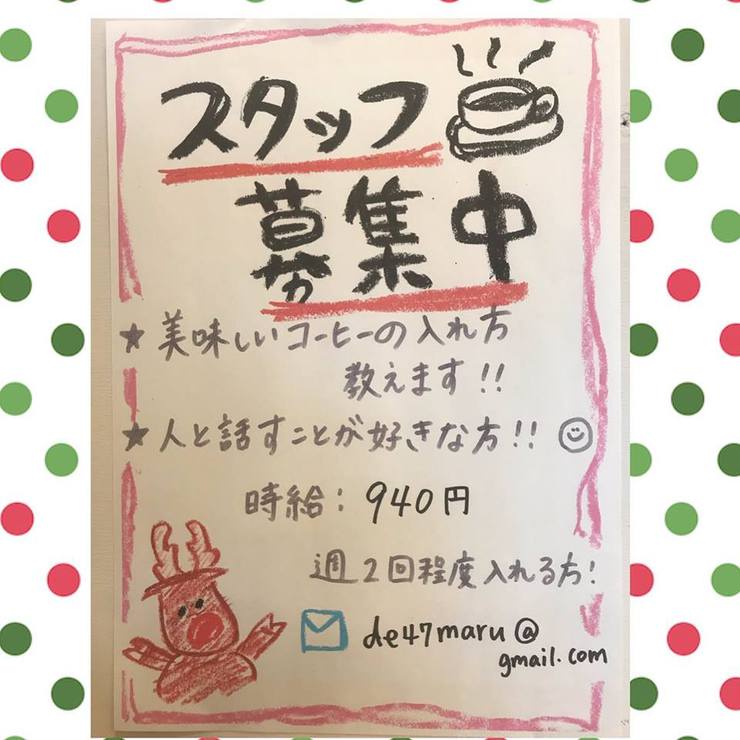 スタッフ
募集中
★美味しいコーヒーの入れ方
教えます!!
★人と話すことが好きな方!!
時給:940円
週2回程度入れる方!
de47maru@
gmail.com